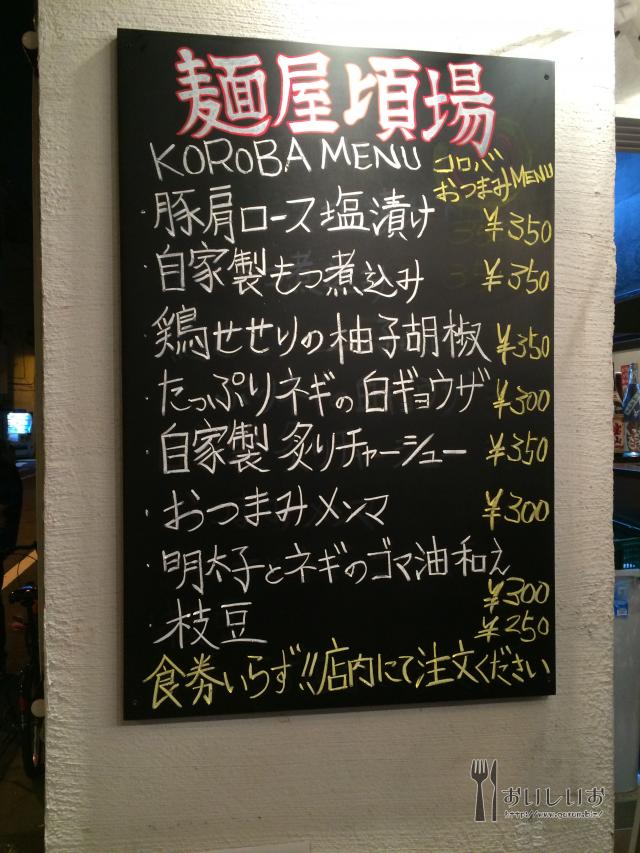 麺屋頃場
KOROBA MENU
コロバ
おつまみMENU
豚肩ロース塩漬け ¥350
・自家製もつ煮込み ¥350
・鶏せせりの柚子胡椒 ¥350
・たっぷりネギの白ギョウザ ¥300
・自家製炙りチャーシュー ¥350
・おつまみメンマ ¥300
・明太子とネギのゴマ油和え
¥300
・枝豆 ¥250
食券いらず!!店内にて注文ください
おいしいお